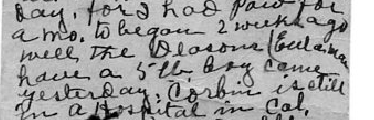 day, for I had paid for
a mo. to began 2 weeks ago
well the Deasons (Eula
have a 5 lb boy came
yesterday, Corbin is still
in a Hospital in Cal,